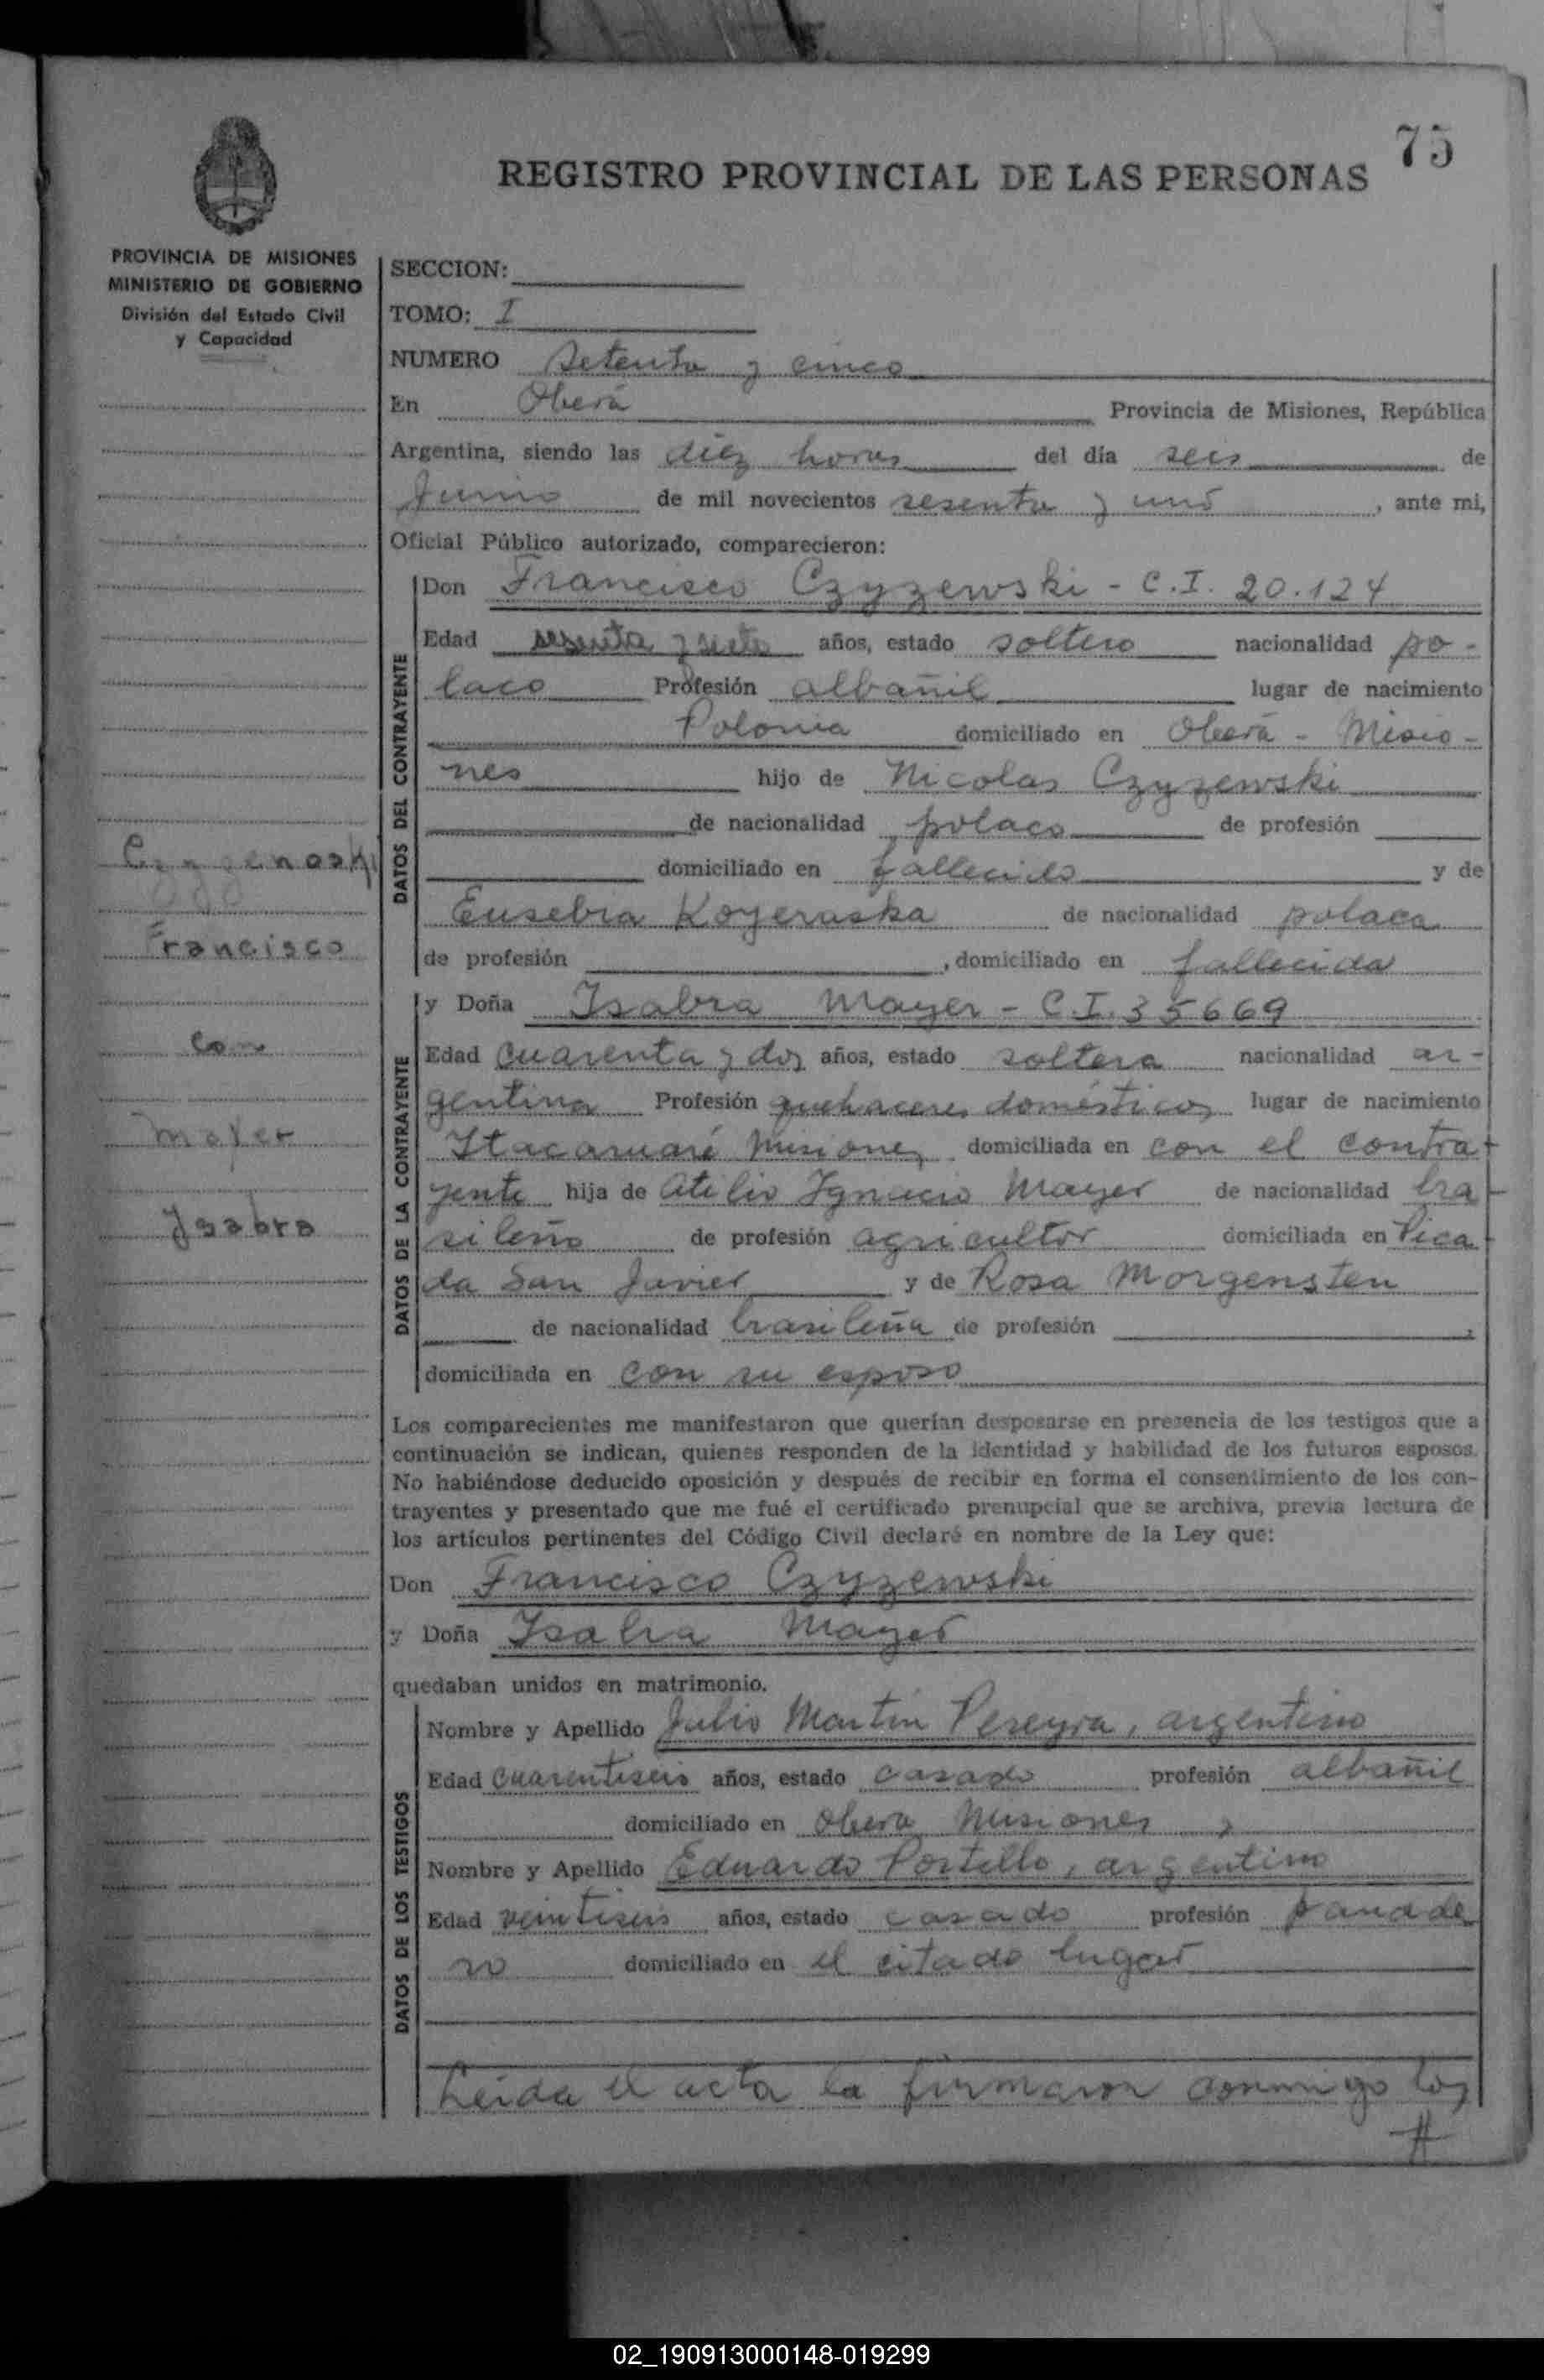 75
REGISTRO PROVINCIAL DE LAS PERSONAS
PROVINCIA DE MISIONES
MINISTERIO DE GOBIERNO
División del Estado Civil
y Capacidad
Czyzenoski
Francisco
con
Mayer
Ysabra
SECCION:
TOMO: I
NUMERO Setenta y cinco
En Oberá Provincia de Misiones, República
Argentina, siendo las diez horas del día seis de
Junio de mil novecientos sesenta y uno, ante mi,
Oficial Público autorizado, comparecieron:
DATOS DEL CONTRAYENTE
Don Francisco Czyzewski - C.I. 20.124
Edad sesenta y siete años, estado soltero nacionalidad po-
laco Profesión albañil lugar de nacimiento
Polonia domiciliado en Oberá - Misio-
nes hijo de Nicolas Czyzewski
de nacionalidad polaco de profesión
domiciliado en fallecido y de
Eusebia Koyeruska de nacionalidad polaca
de profesión , domiciliado en fallecida
DATOS DE LA CONTRAYENTE
y Doña Isabra Mayer - C.I. 35669
Edad cuarenta y dos años, estado soltera nacionalidad ar-
gentina Profesión quehaceres domésticos lugar de nacimiento
Itacaruaré Misiones domiciliada en con el contra
yente hija de Atilio Ignacio Mayer de nacionalidad bra
sileño de profesión agricultor domiciliada en Pica
da San Javier y de Rosa Morgensten
de nacionalidad brasileña de profesión ,
domiciliada en con su esposo
Los comparecientes me manifestaron que querían desposarse en presencia de los testigos que a
continuación se indican, quienes responden de la identidad y habilidad de los futuros esposos.
No habiéndose deducido oposición y después de recibir en forma el consentimiento de los con-
trayentes y presentado que me fué el certificado prenupcial que se archiva, previa lectura de
los artículos pertinentes del Código Civil declaré en nombre de la Ley que:
Don Francisco Czyzewski
y Doña Isabra Mayer
quedaban unidos en matrimonio.
DATOS DE LOS TESTIGOS
Nombre y Apellido Julio Martín Pereyra, argentino
Edad cuarentiseis años, estado casado profesión albañil
domiciliado en Oberá Misiones y
Nombre y Apellido Eduardo Portillo, argentino
Edad veintiseis años, estado casado profesión panade
ro domiciliado en el citado lugar
Leída el acta la firmaron conmigo los
#
02_190913000148-019299